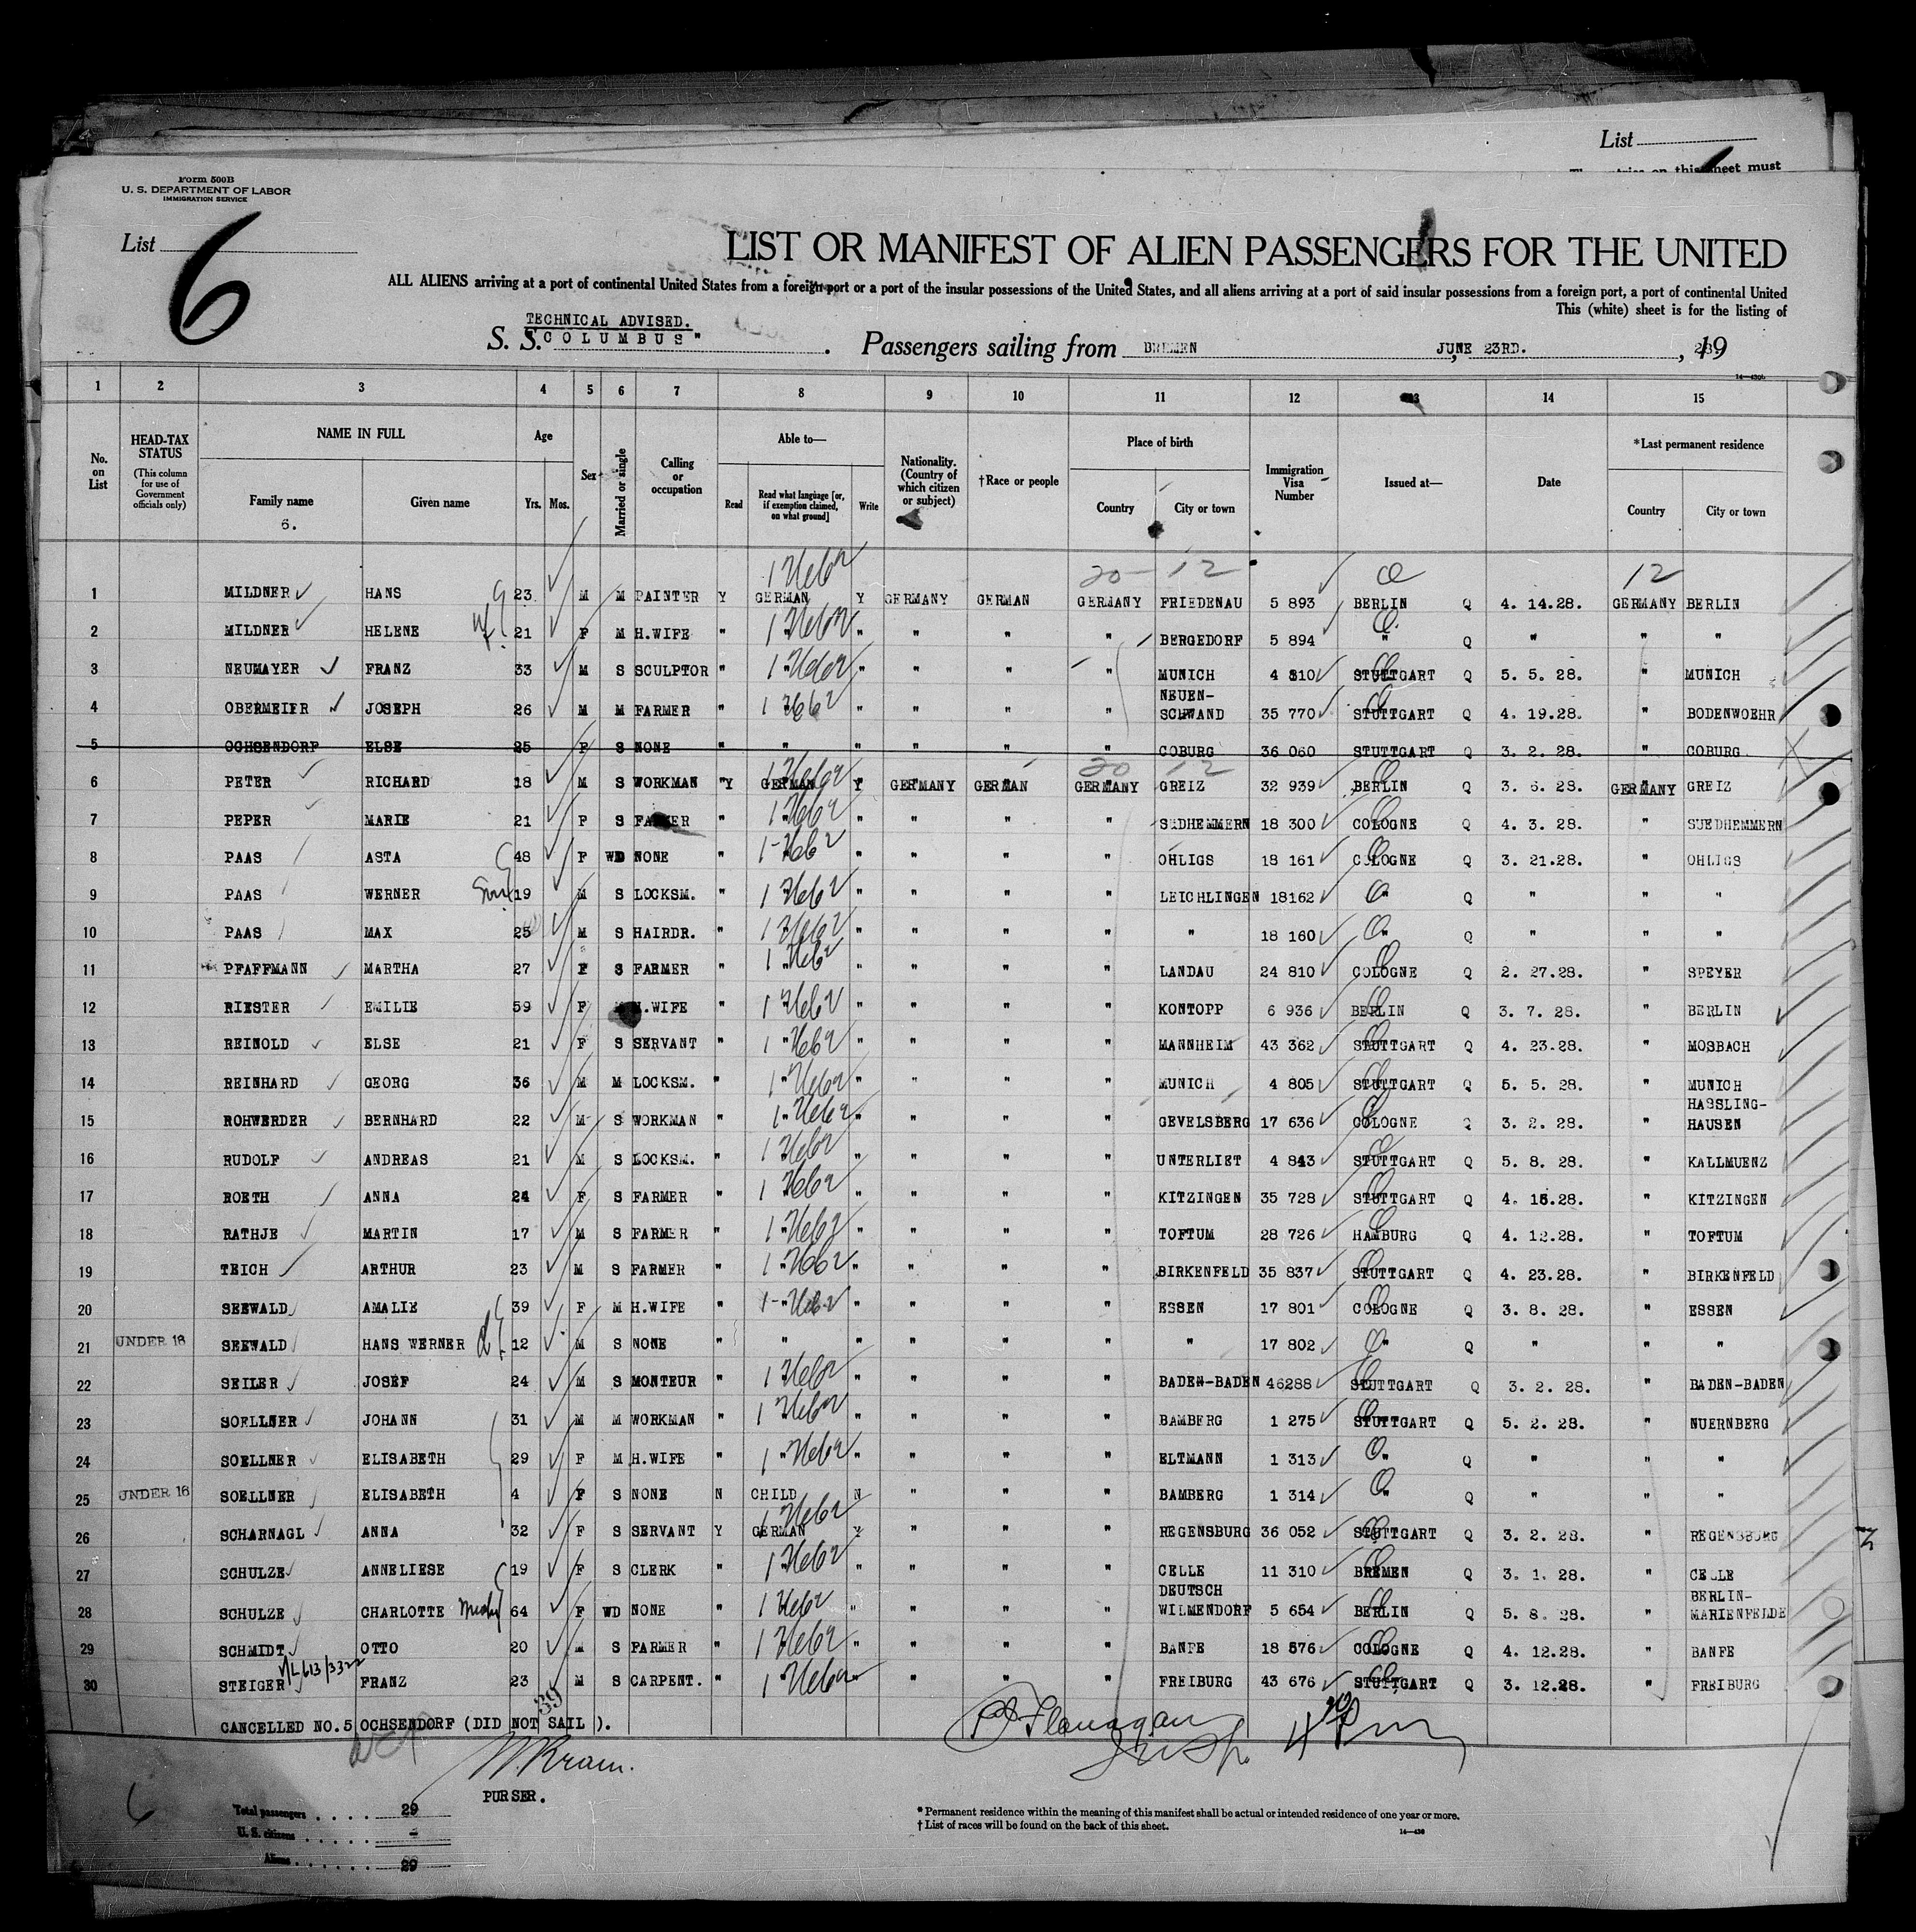 List
Form 500B
U. S. DEPARTMENT OF LABOR
IMMIGRATION SERVICE
List 6
LIST OR MANIFEST OF ALIEN PASSENGERS FOR THE UNITED
ALL ALIENS arriving at a port of continental United States from a foreign port or a port of the insular possessions of the United States, and all aliens arriving at a port of said insular possessions from a foreign port, a port of continental United
This (white) sheet is for the listing of
TECHNICAL ADVISED.
S. S. "COLUMBUS". Passengers sailing from BREMEN, JUNE 23RD., 1928
1 2 3 4 5 6 7 8 9 10 11 12 13 14 15
No. on List
HEAD-TAX STATUS
(This column for use of Government officials only)
NAME IN FULL
Family name
6.
Given name
Age
Yrs. Mos.
Sex
Married or single
Calling or occupation
Able to—
Read
Read what language [or, if exemption claimed, on what ground]
Write
Nationality. (Country of which citizen or subject)
†Race or people
Place of birth
Country
City or town
Immigration Visa Number
Issued at—
Date
*Last permanent residence
Country
City or town
20 12 12
1 MILDNER HANS 23 M M PAINTER Y GERMAN Y GERMANY GERMAN GERMANY FRIEDENAU 5 893 BERLIN Q 4. 14.28. GERMANY BERLIN
2 MILDNER HELENE 21 F M H.WIFE " " " " " BERGEDORF 5 894 " Q " " "
3 NEUMAYER FRANZ 33 M S SCULPTOR " " " " " " MUNICH 4 810 STUTTGART Q 5. 5. 28. " MUNICH
4 OBERMEIER JOSEPH 26 M M FARMER " " " " " " NEUEN-SCHWAND 35 770 STUTTGART Q 4. 19.28. " BODENWOEHR
5 OCHSENDORF ELSE 25 F S NONE " " " " " " COBURG 36 060 STUTTGART Q 3. 2. 28. " COBURG
6 PETER RICHARD 18 M S WORKMAN "Y GERMAN Y GERMANY GERMAN GERMANY GREIZ 32 939 BERLIN Q 3. 6. 28. GERMANY GREIZ
7 PEPER MARIE 21 F S FARMER " " " " " " SUDHEMMERN 18 300 COLOGNE Q 4. 3. 28. " SUEDHEMMERN
8 PAAS ASTA 48 F WD NONE " " " " " " OHLIGS 18 161 COLOGNE Q 3. 21.28. " OHLIGS
9 PAAS WERNER 19 M S LOCKSM. " " " " " " LEICHLINGEN 18162 " Q " " "
10 PAAS MAX 25 M S HAIRDR. " " " " " " " 18 160 " Q " " "
11 PFAFFMANN MARTHA 27 F S FARMER " " " " " " LANDAU 24 810 COLOGNE Q 2. 27.28. " SPEYER
12 RIESTER EMILIE 59 F H.WIFE " " " " " " KONTOPP 6 936 BERLIN Q 3. 7. 28. " BERLIN
13 REINOLD ELSE 21 F S SERVANT " " " " " " MANNHEIM 43 362 STUTTGART Q 4. 23.28. " MOSBACH
14 REINHARD GEORG 36 M M LOCKSM. " " " " " " MUNICH 4 805 STUTTGART Q 5. 5. 28. " MUNICH
15 ROHWERDER BERNHARD 22 M S WORKMAN " " " " " " GEVELSBERG 17 636 COLOGNE Q 3. 2. 28. " HASSLING-HAUSEN
16 RUDOLF ANDREAS 21 M S LOCKSM. " " " " " " UNTERLIET 4 843 STUTTGART Q 5. 8. 28. " KALLMUENZ
17 ROETH ANNA 24 F S FARMER " " " " " " KITZINGEN 35 728 STUTTGART Q 4. 16.28. " KITZINGEN
18 RATHJE MARTIN 17 M S FARMER " " " " " " TOFTUM 28 726 HAMBURG Q 4. 12.28. " TOFTUM
19 TEICH ARTHUR 23 M S FARMER " " " " " " BIRKENFELD 35 837 STUTTGART Q 4. 23.28. " BIRKENFELD
20 SEEWALD AMALIE 39 F M H.WIFE " " " " " " ESSEN 17 801 COLOGNE Q 3. 8. 28. " ESSEN
21 UNDER 16 SEEWALD HANS WERNER 12 M S NONE " " " " " " " 17 802 " Q " " "
22 SEILER JOSEF 24 M S MONTEUR " " " " " " BADEN-BADEN 46288 STUTTGART Q 3. 2. 28. " BADEN-BADEN
23 SOELLNER JOHANN 31 M M WORKMAN " " " " " " BAMBERG 1 275 STUTTGART Q 5. 2. 28. " NUERNBERG
24 SOELLNER ELISABETH 29 F M H.WIFE " " " " " " ELTMANN 1 313 " Q " " "
25 UNDER 16 SOELLNER ELISABETH 4 F S NONE N CHILD N " " " BAMBERG 1 314 " Q " " "
26 SCHARNAGL ANNA 32 F S SERVANT Y GERMAN Y " " " REGENSBURG 36 052 STUTTGART Q 3. 2. 28. " REGENSBURG
27 SCHULZE ANNELIESE 19 F S CLERK " " " " " " CELLE 11 310 BREMEN Q 3. 1. 28. " CELLE
28 SCHULZE CHARLOTTE 64 F WD NONE " " " " " " DEUTSCH WILMENDORF 5 654 BERLIN Q 5. 8. 28. " BERLIN-MARIENFELDE
29 SCHMIDT OTTO 20 M S FARMER " " " " " " BANFE 18 576 COLOGNE Q 4. 12.28. " BANFE
30 STEIGER FRANZ 23 M S CARPENT. " " " " " " FREIBURG 43 676 STUTTGART Q 3. 12.28. " FREIBURG
CANCELLED NO.5 OCHSENDORF (DID NOT SAIL ).
39
Flanagan
PURSER.
6
Total passengers . . . . 29
U. S. citizens . . . . . -
Aliens . . . . . . 29
* Permanent residence within the meaning of this manifest shall be actual or intended residence of one year or more.
† List of races will be found on the back of this sheet.
14—430